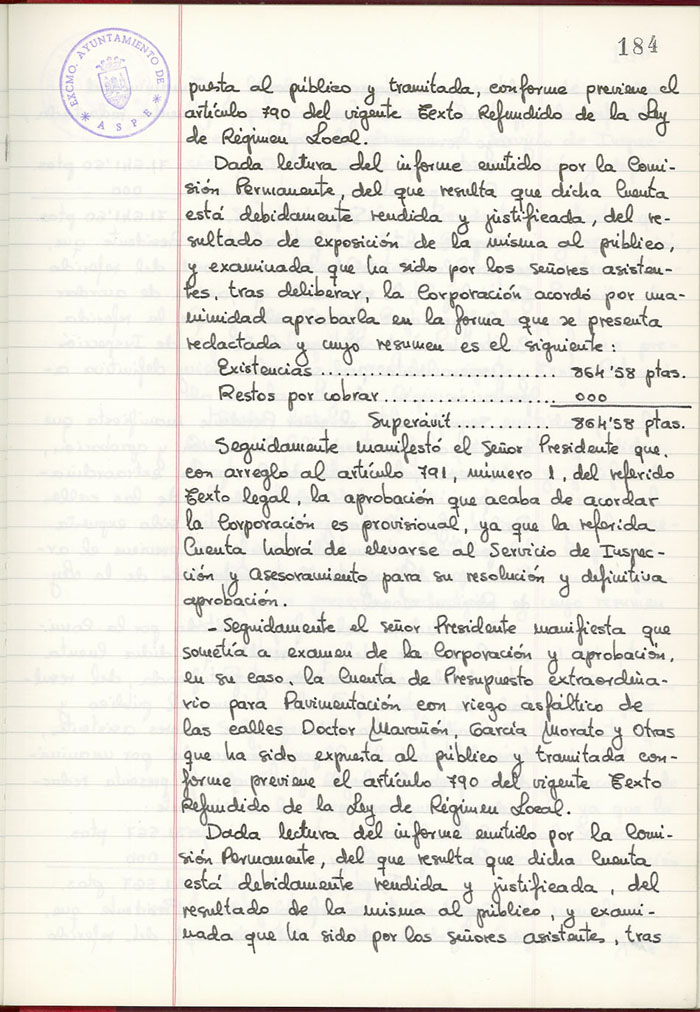 184
EXCMO. AYUNTAMIENTO DE
* ASPE *
puesta al público y tramitada, conforme previene el
artículo 790 del vigente Texto Refundido de la Ley
de Régimen Local.
Dada lectura del informe emitido por la Comi-
sión Permanente, del que resulta que dicha Cuenta
está debidamente rendida y justificada, del re-
sultado de exposición de la misma al público,
y examinada que ha sido por los señores asisten-
tes, tras deliberar, la Corporación acordó por una-
nimidad aprobarla en la forma que se presenta
redactada y cuyo resumen es el siguiente:
Existencias .............................. 864'58 ptas.
Restos por cobrar...................... 000
Superávit........... 864'58 ptas.
Seguidamente manifestó el Señor Presidente que,
con arreglo al artículo 791, número 1, del referido
Texto legal, la aprobación que acaba de acordar
la Corporación es provisional, ya que la referida
Cuenta habrá de elevarse al Servicio de Inspec-
ción y Asesoramiento para su resolución y definitiva
aprobación.
- Seguidamente el señor Presidente manifiesta que
sometía a examen de la Corporación y aprobación,
en su caso, la Cuenta de Presupuesto extraordina-
rio para Pavimentación con riego asfáltico de
las calles Doctor Marañón, García Morato y Otras
que ha sido expuesta al público y tramitada con-
forme previene el artículo 790 del vigente Texto
Refundido de la Ley de Régimen Local.
Dada lectura del informe emitido por la Comi-
sión Permanente, del que resulta que dicha Cuenta
está debidamente rendida y justificada, del
resultado de la misma al público, y exami-
nada que ha sido por los señores asistentes, tras